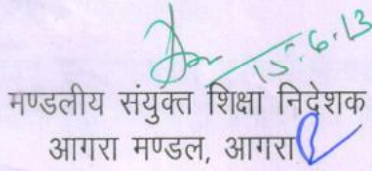 15.6.13
मण्डलीय संयुक्त शिक्षा निदेशक
आगरा मण्डल, आगरा